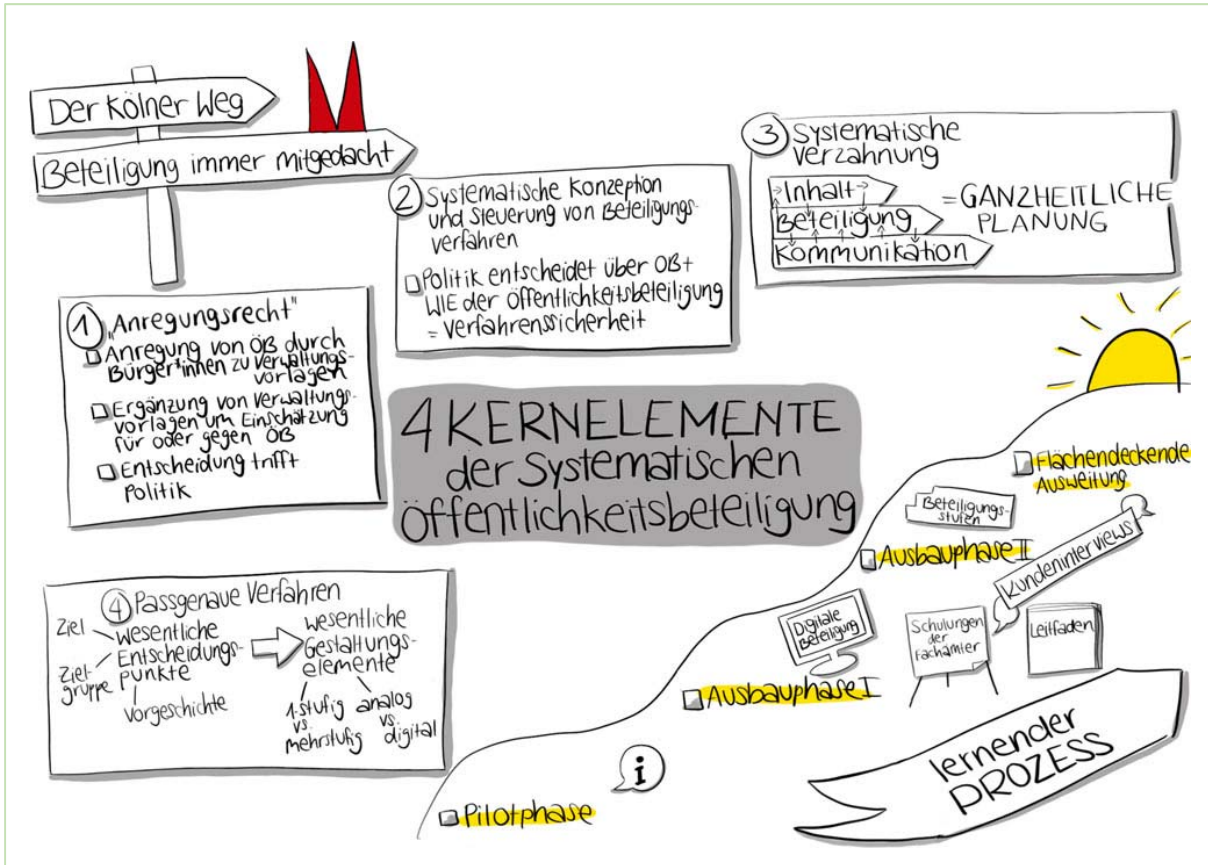 Der Kölner Weg
Beteiligung immer mitgedacht
1 "Anregungsrecht"
Anregung von ÖB durch
Bürger*innen zu Verwaltungs-
vorlagen
Ergänzung von Verwaltungs-
vorlagen um Einschätzung
für oder gegen ÖB
Entscheidung trifft
Politik
2 Systematische Konzeption
und Steuerung von Beteiligungs-
verfahren
Politik entscheidet über OB+
WIE der Öffentlichkeitsbeteiligung
= Verfahrenssicherheit
3 Systematische
Verzahnung
Inhalt
Beteiligung
Kommunikation
= GANZHEITLICHE
PLANUNG
4 KERNELEMENTE
der Systematischen
Öffentlichkeitsbeteiligung
4 Passgenaue Verfahren
Ziel
Ziel-
gruppe
wesentliche
Entscheidungs-
punkte
Vorgeschichte
wesentliche
Gestaltungs-
elemente
1-stufig
vs.
mehrstufig
analog
vs.
digital
Pilotphase
i
Ausbauphase I
Digitale
Beteiligung
Ausbauphase II
Beteiligungs-
stufen
Flächendeckende
Ausweitung
Schulungen
der
Fachämter
Kundeninterviews
Leitfaden
lernender
PROZESS